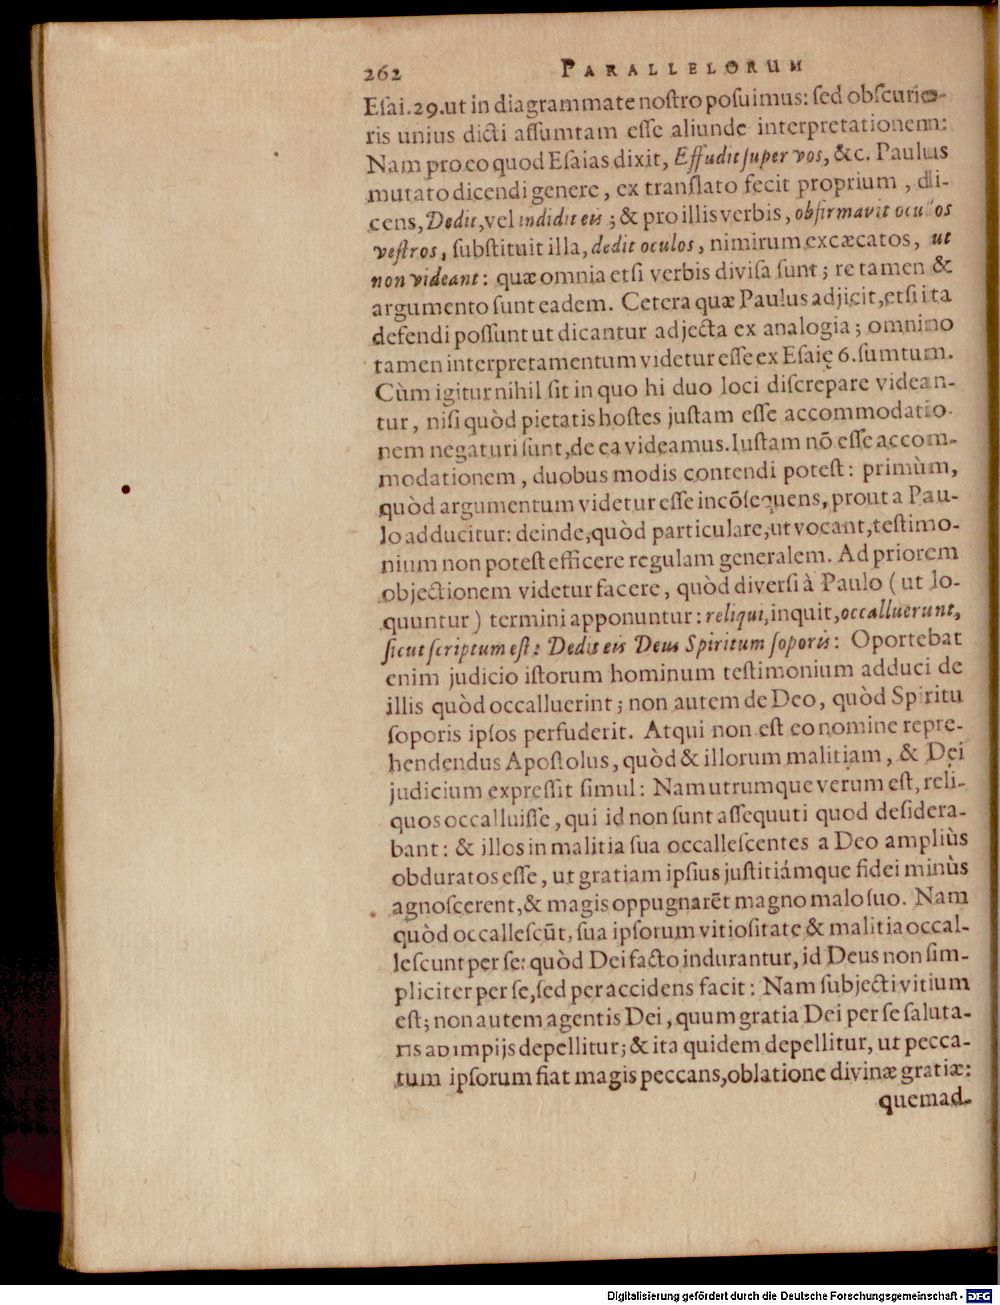 262 PARALLELORUM
Esai.29.ut in diagrammate nostro posuimus: sed obscurio-
ris unius dicti assumtam esse aliunde interpretationem:
Nam pro eo quod Esaias dixit, Effudit super vos, &c. Paulus
mutato dicendi genere, ex translato fecit proprium, di-
cens, Dedit, vel indidit eis; & pro illis verbis, obfirmavit oculos
vestros, substituit illa, dedit oculos, nimirum excæcatos, ut
non videant: quæ omnia etsi verbis divisa sunt; re tamen &
argumento sunt eadem. Cetera quæ Paulus adjicit, etsi ita
defendi possunt ut dicantur adjecta ex analogia; omnino
tamen interpretamentum videtur esse ex Esaię 6. sumtum.
Cùm igitur nihil sit in quo hi duo loci discrepare videan-
tur, nisi quòd pietatis hostes justam esse accommodatio-
nem negaturi sunt, de ea videamus. Iustam nō esse accom-
modationem, duobus modis contendi potest: primùm,
quòd argumentum videtur esse incōsequens, prout a Pau-
lo adducitur: deinde, quòd particulare, ut vocant, testimo-
nium non potest efficere regulam generalem. Ad priorem
objectionem videtur facere, quòd diversi à Paulo (ut lo-
quuntur) termini apponuntur: reliqui, inquit, occalluerunt,
sicut scriptum est: Dedit eis Deus Spiritum soporis: Oportebat
enim judicio istorum hominum testimonium adduci de
illis quòd occalluerint; non autem de Deo, quòd Spiritu
soporis ipsos perfuderit. Atqui non est eo nomine repre-
hendendus Apostolus, quòd & illorum malitiam, & Dei
judicium expressit simul: Nam utrumque verum est, reli-
quos occalluisse, qui id non sunt assequuti quod desidera-
bant: & illos in malitia sua occallescentes a Deo ampliùs
obduratos esse, ut gratiam ipsius justitiámque fidei minùs
agnoscerent, & magis oppugnarēt magno malo suo. Nam
quòd occallescūt, sua ipsorum vitiositate & malitia occal-
lescunt per se: quòd Dei facto indurantur, id Deus non sim-
pliciter per se, sed per accidens facit: Nam subjecti vitium
est; non autem agentis Dei, quum gratia Dei per se saluta-
ris ab impijs depellitur; & ita quidem depellitur, ut pecca-
tum ipsorum fiat magis peccans, oblatione divinæ gratiæ:
quemad-
Digitalisierung gefördert durch die Deutsche Forschungsgemeinschaft - DFG